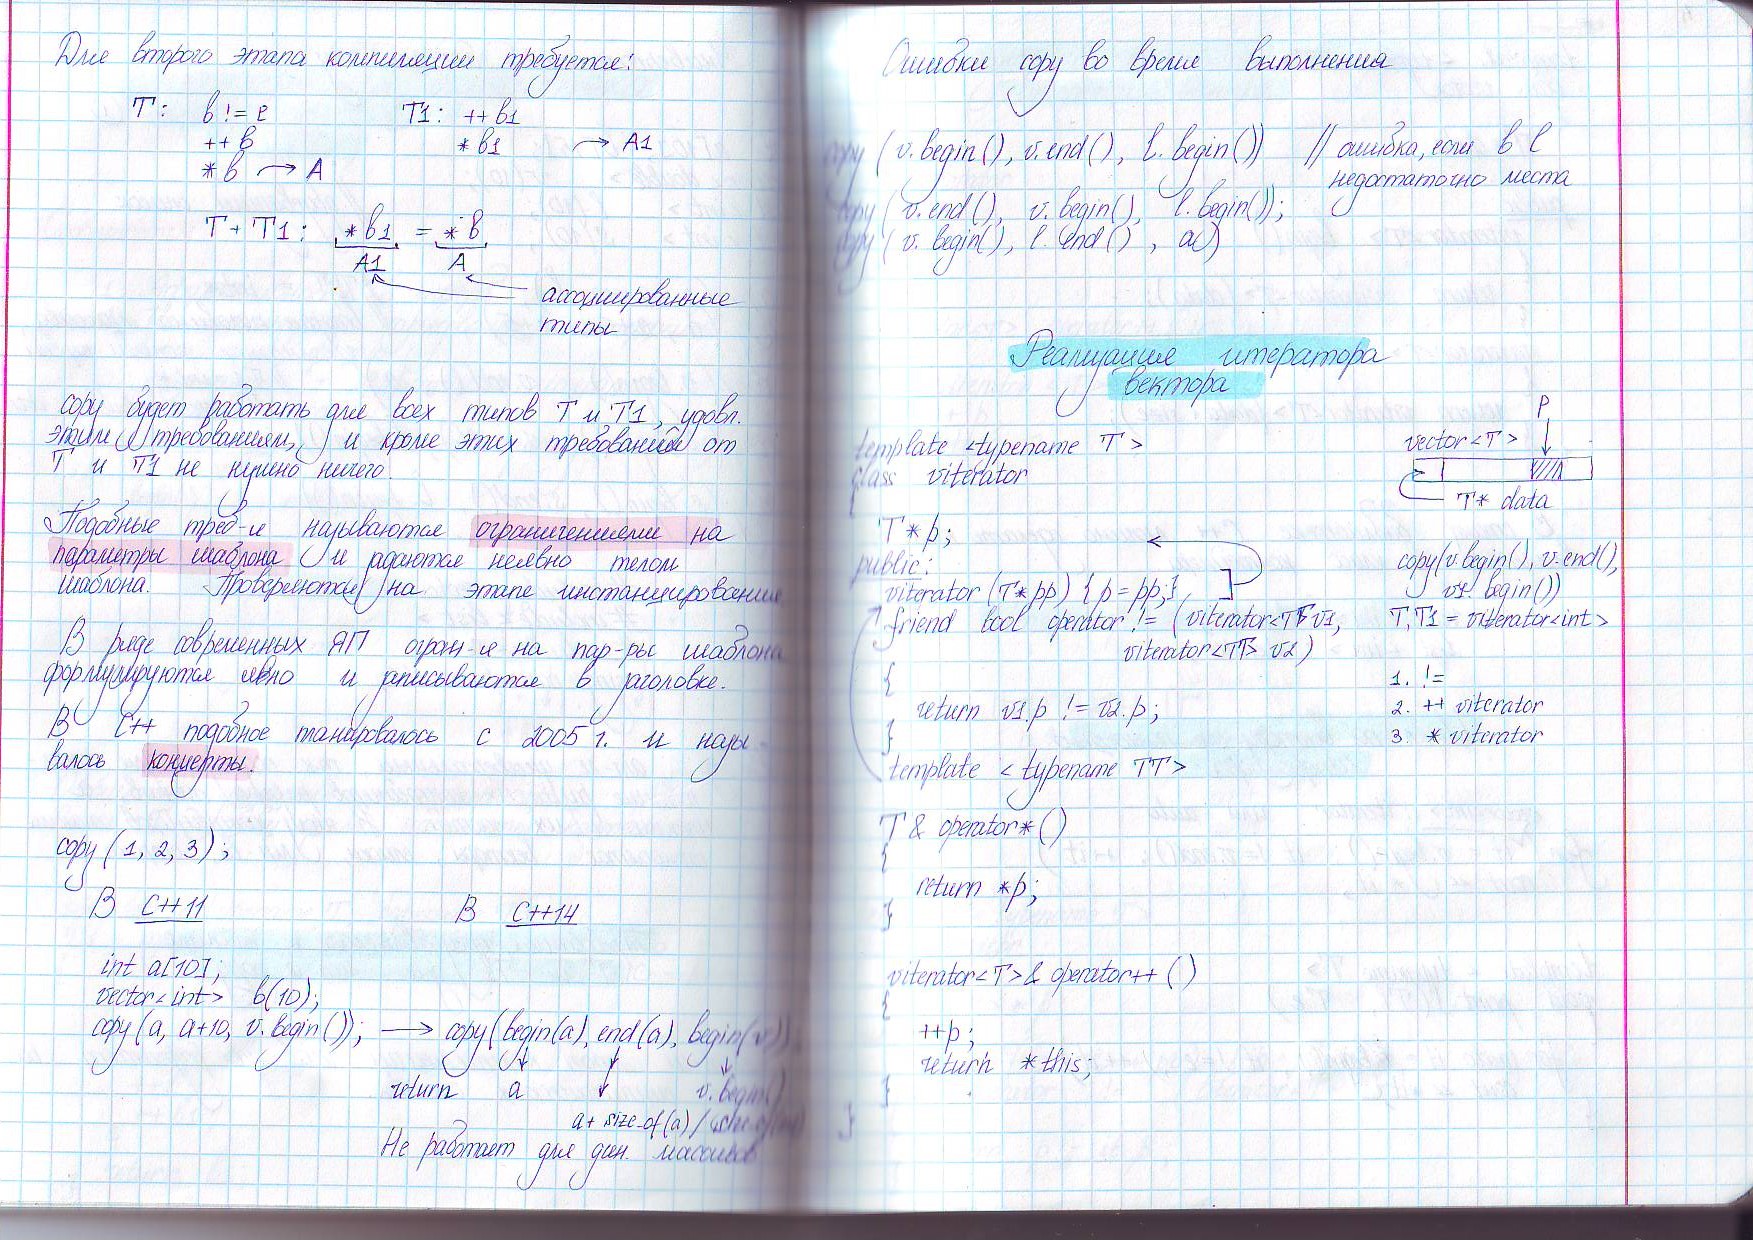 Для второго этапа компиляции требуется:
T: b != e T1: ++b1
++b *b1 → A1
*b → A
T+T1: *b1 = *b
A1 A
ассоциированные
типы
copy будет работать для всех типов T и T1, удовл.
этим требованиям, и кроме этих требований от
T и T1 не нужно ничего.
Подобные треб-я называются ограничениями на
параметры шаблона и задаются неявно телом
шаблона. Проверяются на этапе инстанцирования
В ряде современных ЯП огран-я на пар-ры шаблона
формулируются явно и записываются в заголовке.
В C++ подобное планировалось с 2005 г. и назы
валось концепты.
copy(1, 2, 3);
В C++11 В C++14
int a[10];
vector<int> b(10);
copy(a, a+10, v.begin()); → copy(begin(a), end(a), begin(v))
return a v.begin()
a + size_of(a) /
Не работает для дин. массивов
Ошибки copy во время выполнения
copy(v.begin(), v.end(), l.begin()) // ошибка, если в l
недостаточно места
copy(v.end(), v.begin(), l.begin());
copy(v.begin(), l.end(), a)
Реализация итератора
вектора
template <typename T>
class viterator
{
T* p;
public:
viterator(T* pp) {p = pp;}
friend bool operator != (viterator<TT> v1,
viterator<TT> v2)
{
return v1.p != v2.p;
}
template <typename TT>
T& operator*()
{
return *p;
}
viterator<T>& operator++()
{
++p;
return *this;
}
}
p
vector<T>
T* data
copy(v.begin(), v.end(),
v1.begin())
T, T1 = viterator<int>
1. !=
2. ++ viterator
3. * viterator